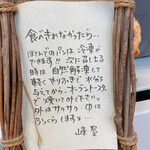 食べきれなかったら…
ほとんどのパンは冷凍が
できます!! 次に召し上る
時は自然解凍して
軽くきりふきで水分を
与えてから、オーブントースター
で焼いてみて下さい。
外はサクサク 中は
ふっくらします♪
峰屋